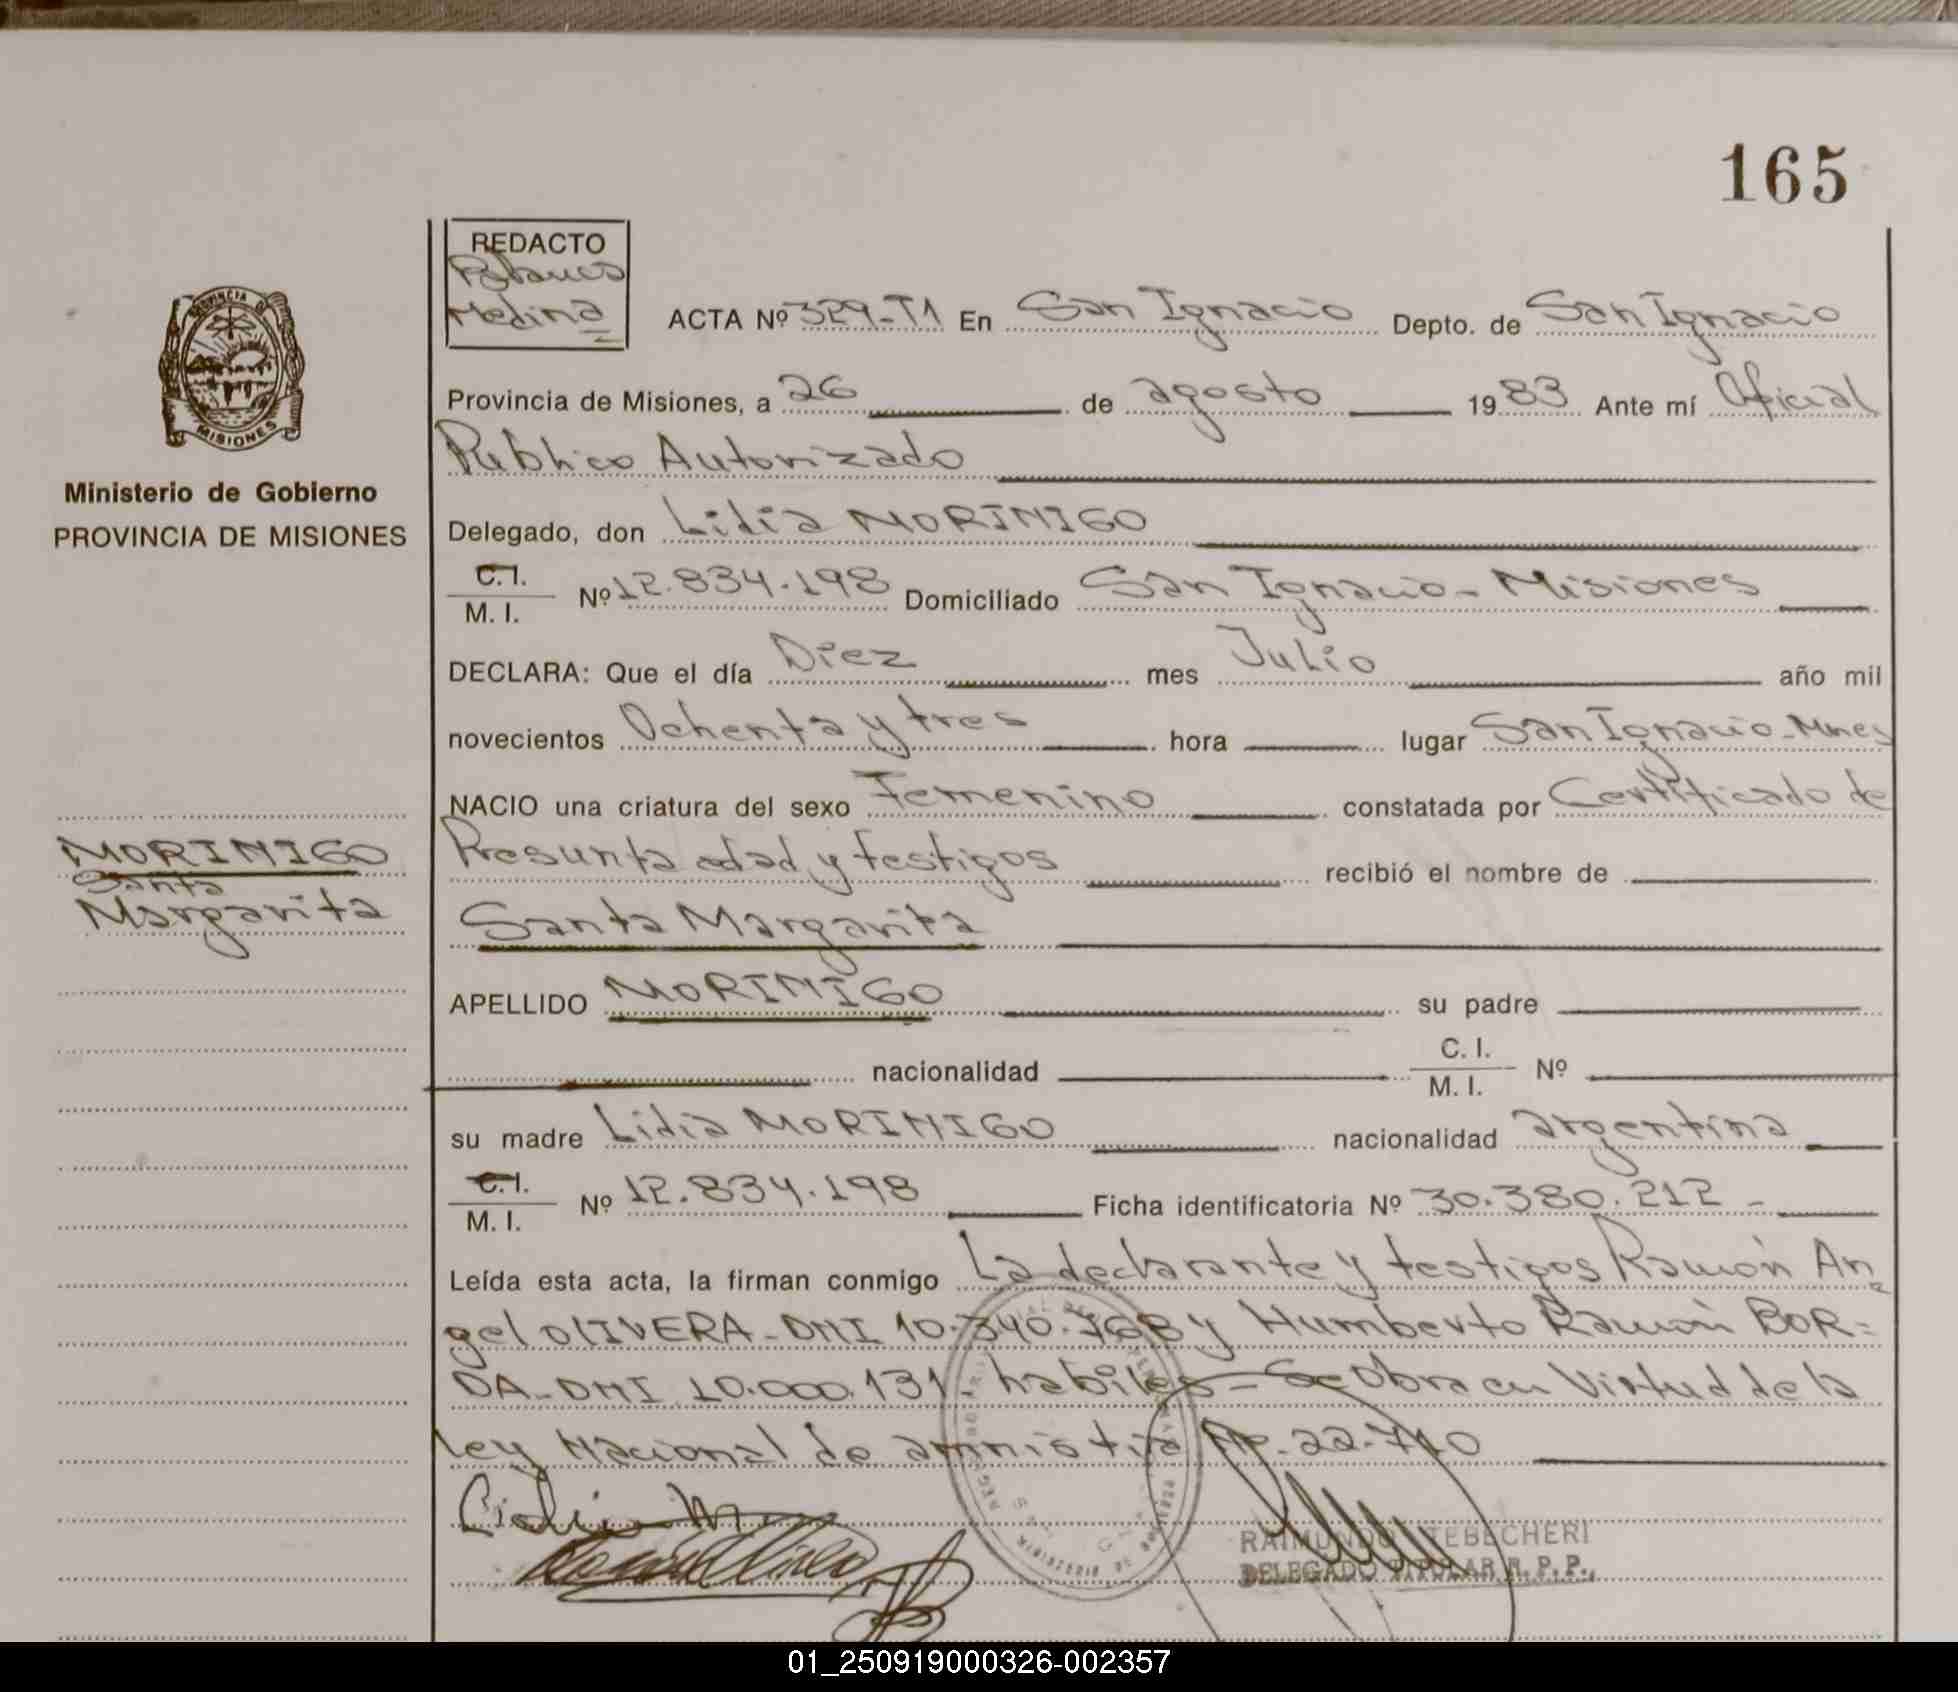 165
REDACTO
Medina
ACTA Nº 329-T1 En San Ignacio Depto. de San Ignacio
Provincia de Misiones, a 26 de agosto 1983 Ante mí Oficial
Publico Autorizado
Ministerio de Gobierno
PROVINCIA DE MISIONES
Delegado, don Lidia MORINIGO
C.I.
M. I. Nº 12.834.198 Domiciliado San Ignacio - Misiones
DECLARA: Que el día Diez mes Julio año mil
novecientos Ochenta y tres hora lugar San Ignacio - Mnes
NACIO una criatura del sexo Femenino constatada por Certificado de
Presunta edad y testigos recibió el nombre de
MORINIGO
Santa
Margarita
Santa Margarita
APELLIDO MORINIGO su padre
nacionalidad C. I.
M. I. Nº
su madre Lidia MORINIGO nacionalidad argentina
C.I.
M. I. Nº 12.834.198 Ficha identificatoria Nº 30.380.212 -
Leída esta acta, la firman conmigo La declarante y testigos Ramón An
gel OLIVERA - DNI 10.340.768 y Humberto Ramón BOR=
DA - DNI 10.000.131 habiles - Se Obra en Virtud de la
Ley Nacional de amnistia Nº 22.710
RAIMUNDO TEBECHERI
DELEGADO TITULAR R. P. P.
PROVINCIA DE
MISIONES
01_250919000326-002357